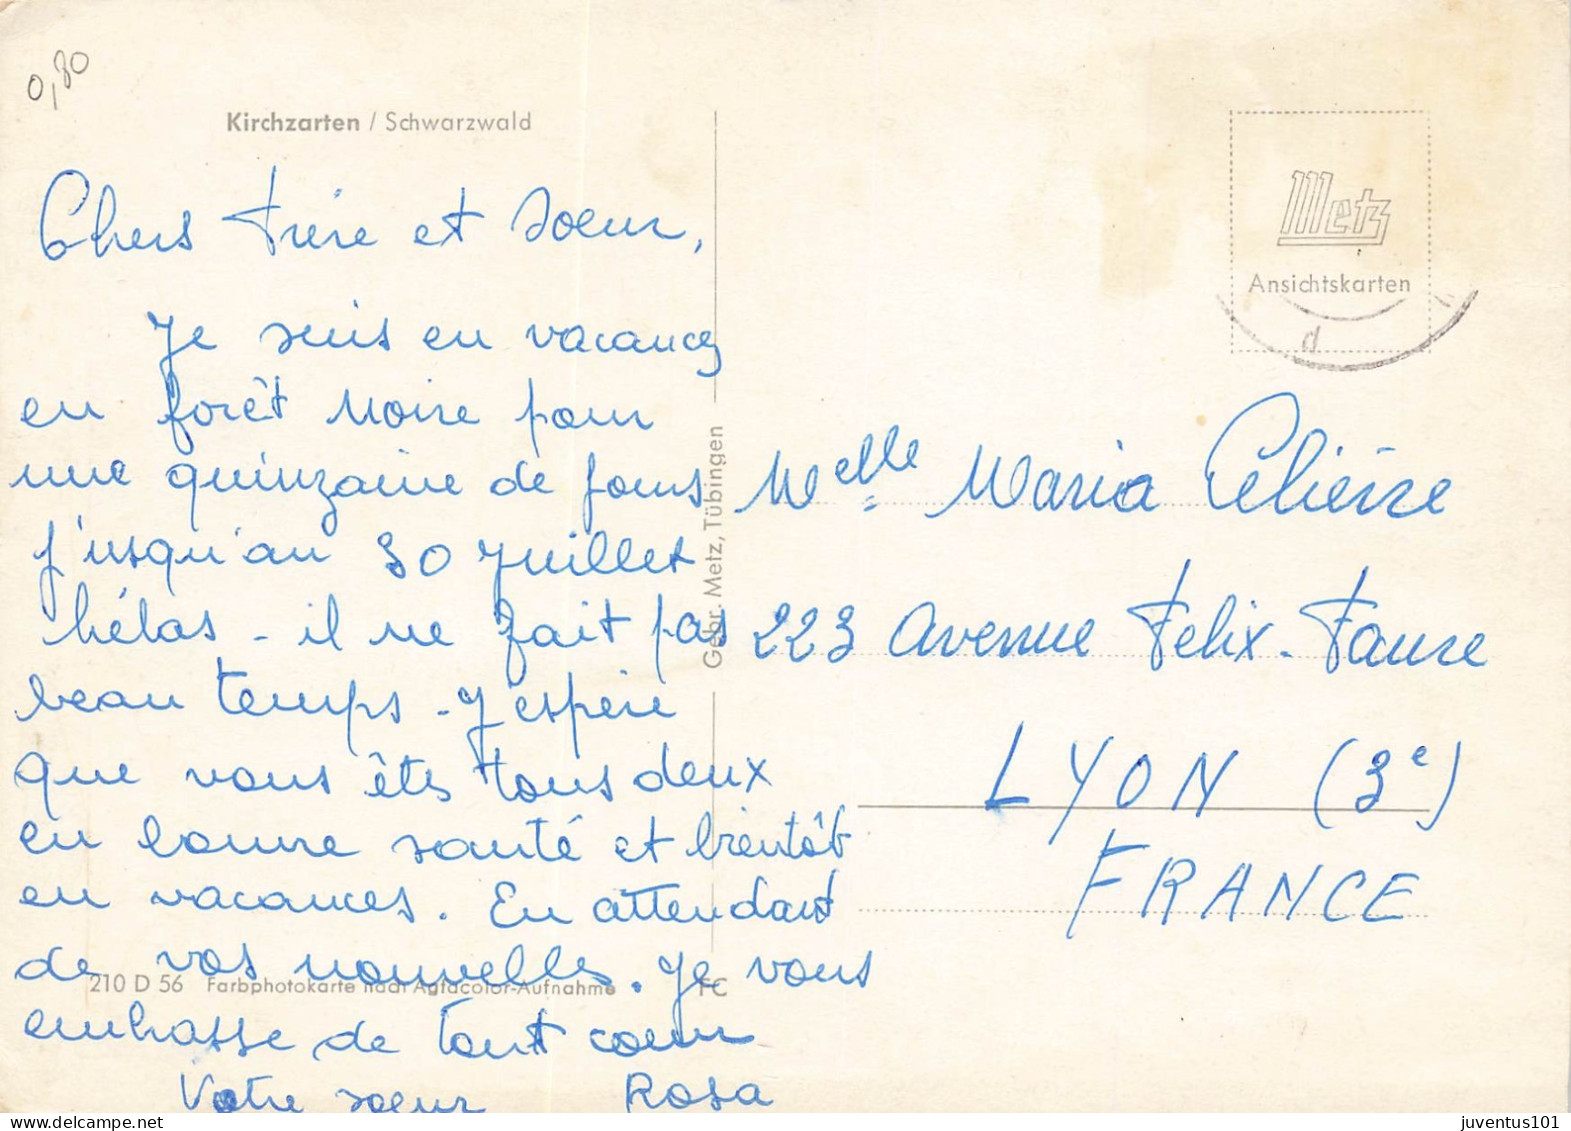 0,80
Kirchzarten / Schwarzwald
Chers frère et soeur,
Je suis en vacances
en forêt noire pour
une quinzaine de jours
j'usqu'au 30 Juillet
hélas - il ne fait pas
beau temps - J'espère
que vous êtes tous deux
en bonne santé et bientôt
en vacances. En attendant
de vos nouvelles. Je vous
embrasse de tout coeur
Votre soeur Rosa
210 D 56 Farbphotokarte nach Agfacolor-Aufnahme
FC
Gebr. Metz, Tübingen
Metz
Ansichtskarten
d
Melle Maria Célière
223 Avenue Felix-Faure
LYON (3e)
FRANCE
juventus101